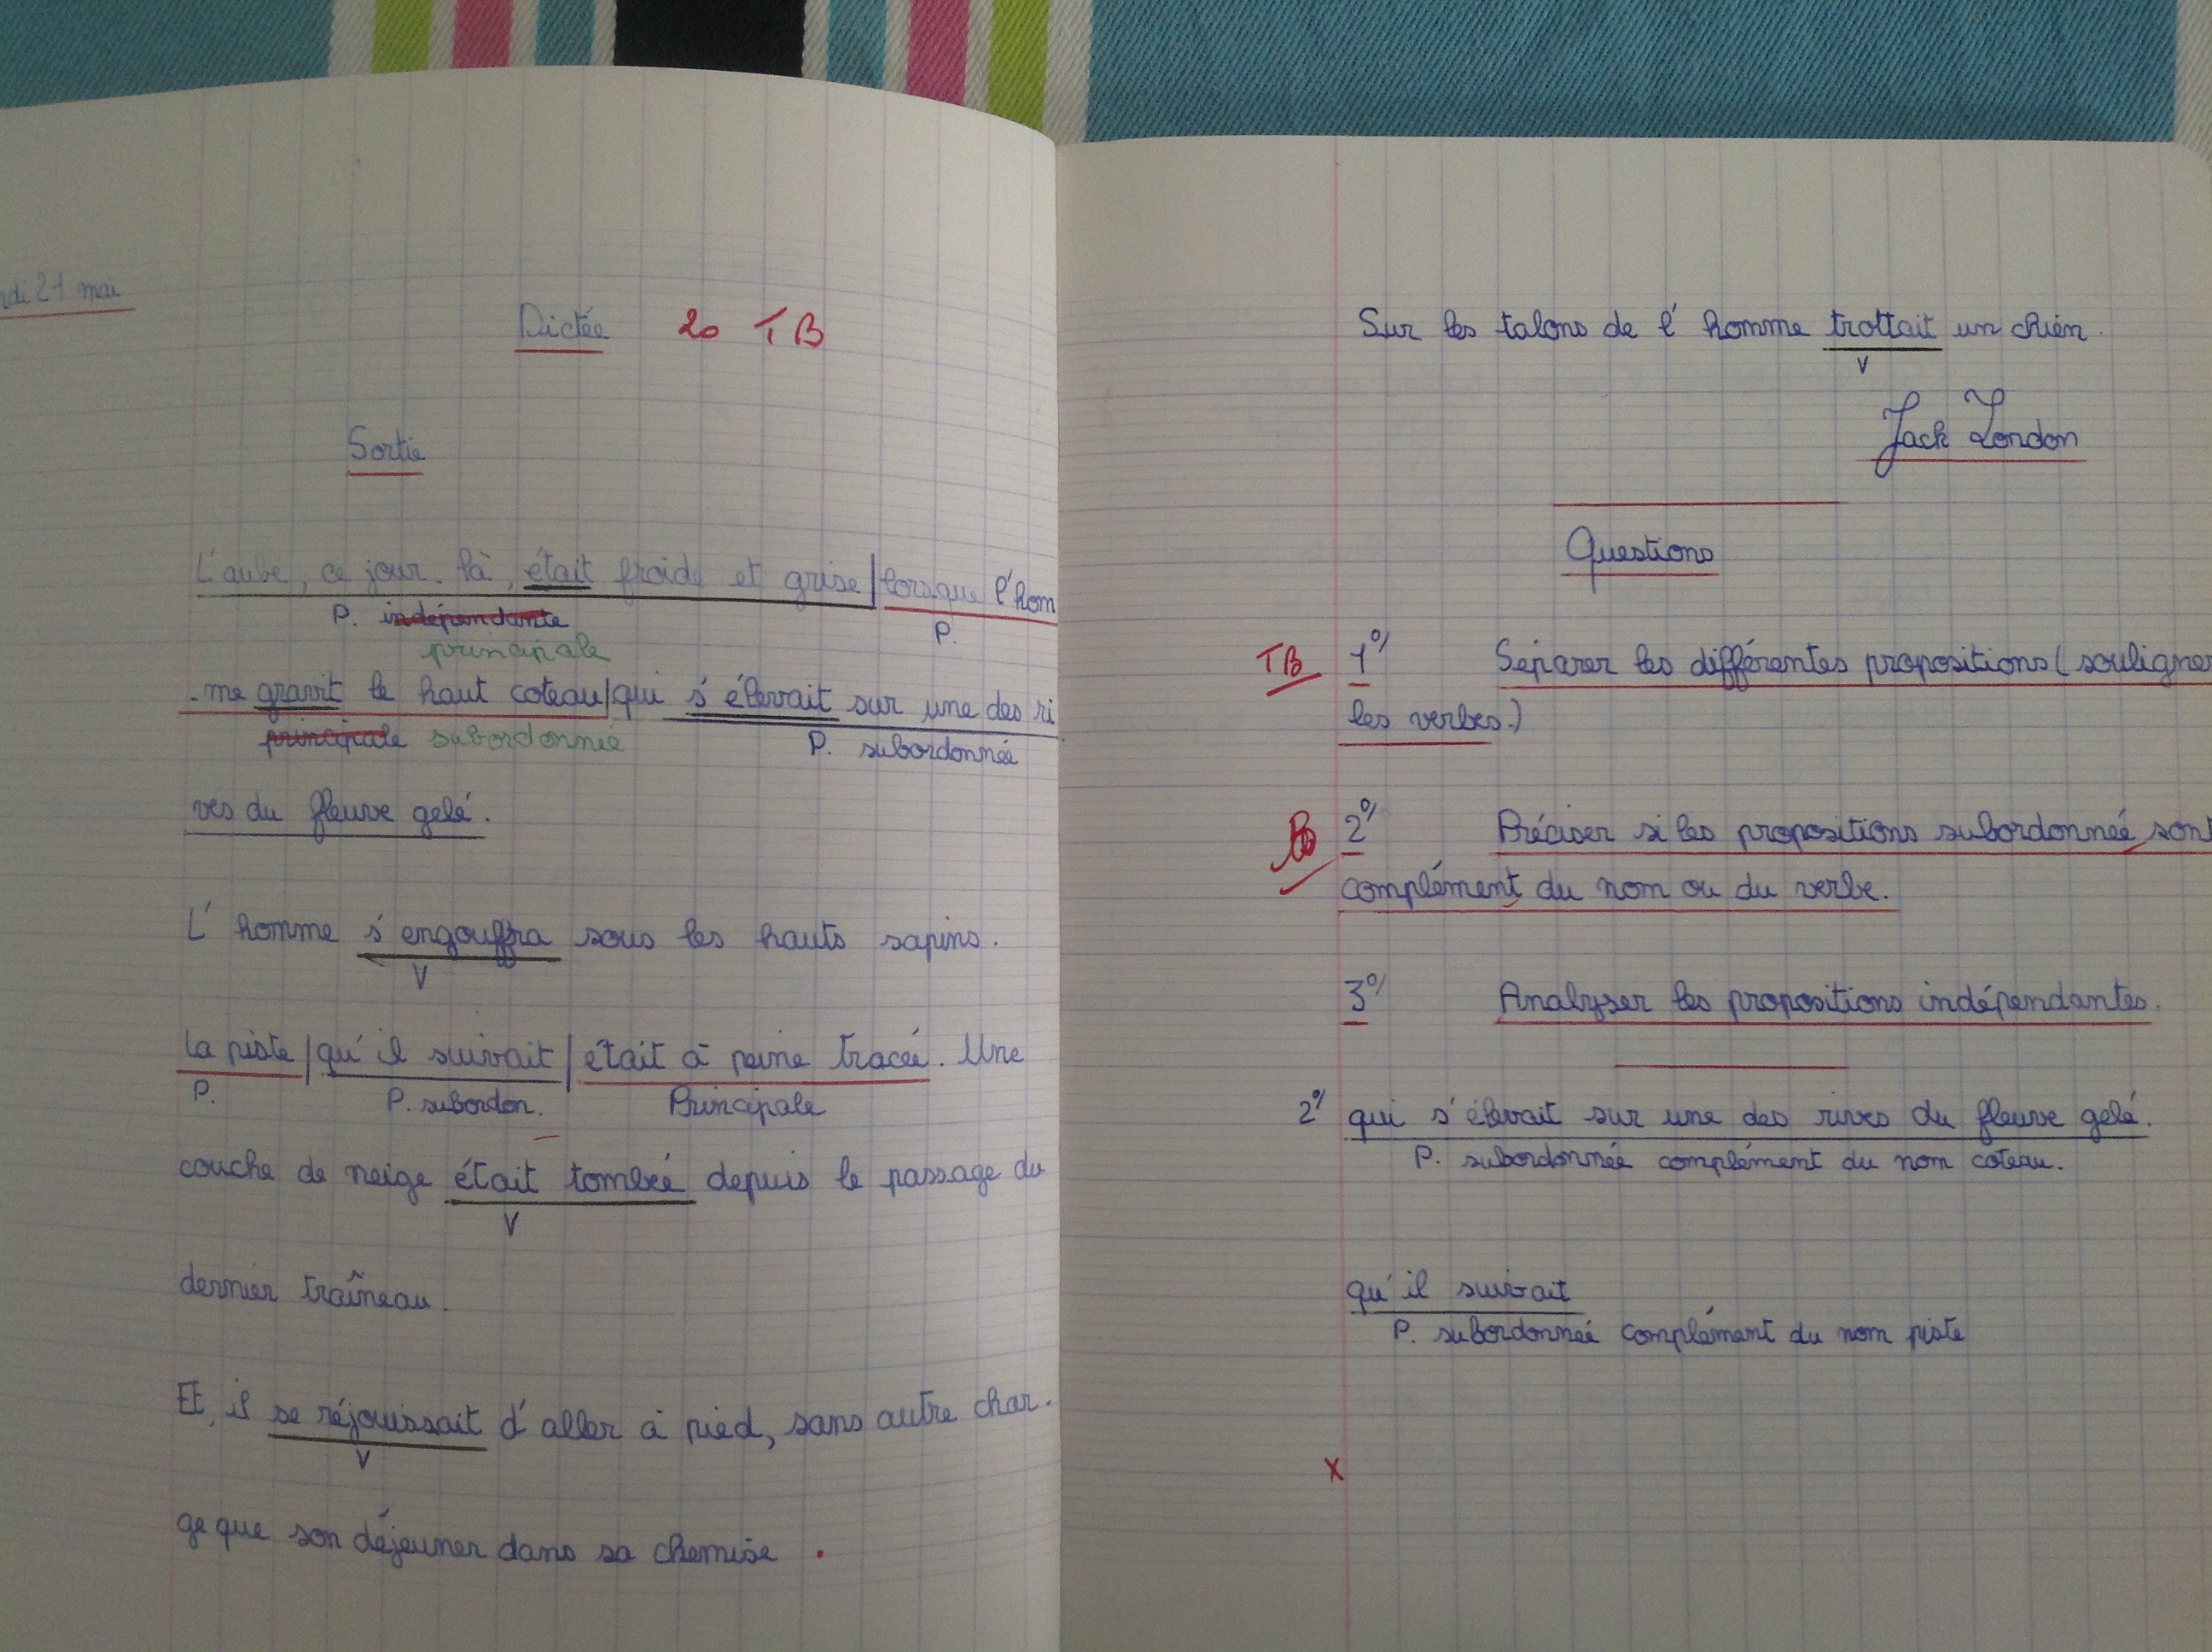 21 mai
Dictée 20 TB
Sortie
L'aube, ce jour-là, était froide et grise / lorsque l'hom
P. indépendante P.
principale
-me gravit le haut coteau / qui s'élevait sur une des ri
principale subordonnée P. subordonnée
ves du fleuve gelé.
L'homme s'engouffra sous les hauts sapins.
V
La piste / qu'il suivait / était à peine tracée. Une
P. P. subordon. Principale
couche de neige était tombée depuis le passage du
V
dernier traîneau.
Et, il se réjouissait d'aller à pied, sans autre char-
V
ge que son déjeuner dans sa chemise.
Sur les talons de l'homme trottait un chien.
V
Jack London
Questions
TB 1°/ Séparer les différentes propositions (souligner
les verbes.)
B 2°/ Préciser si les propositions subordonnée sont
complément du nom ou du verbe.
3°/ Analyser les propositions indépendantes.
2°/ qui s'élevait sur une des rives du fleuve gelé.
P. subordonnée complément du nom coteau.
qu'il suivait
P. subordonnée complément du nom piste
x